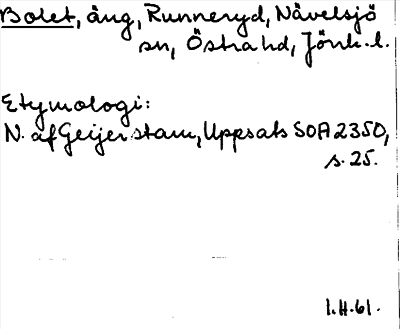 Bolet, äng, Runneryd, Nävelsjö
sn, Östra hd, Jönk. l.
Etymologi:
N. af Geijerstam, Uppsats SOA 2350,
s. 25.
1.H.61.